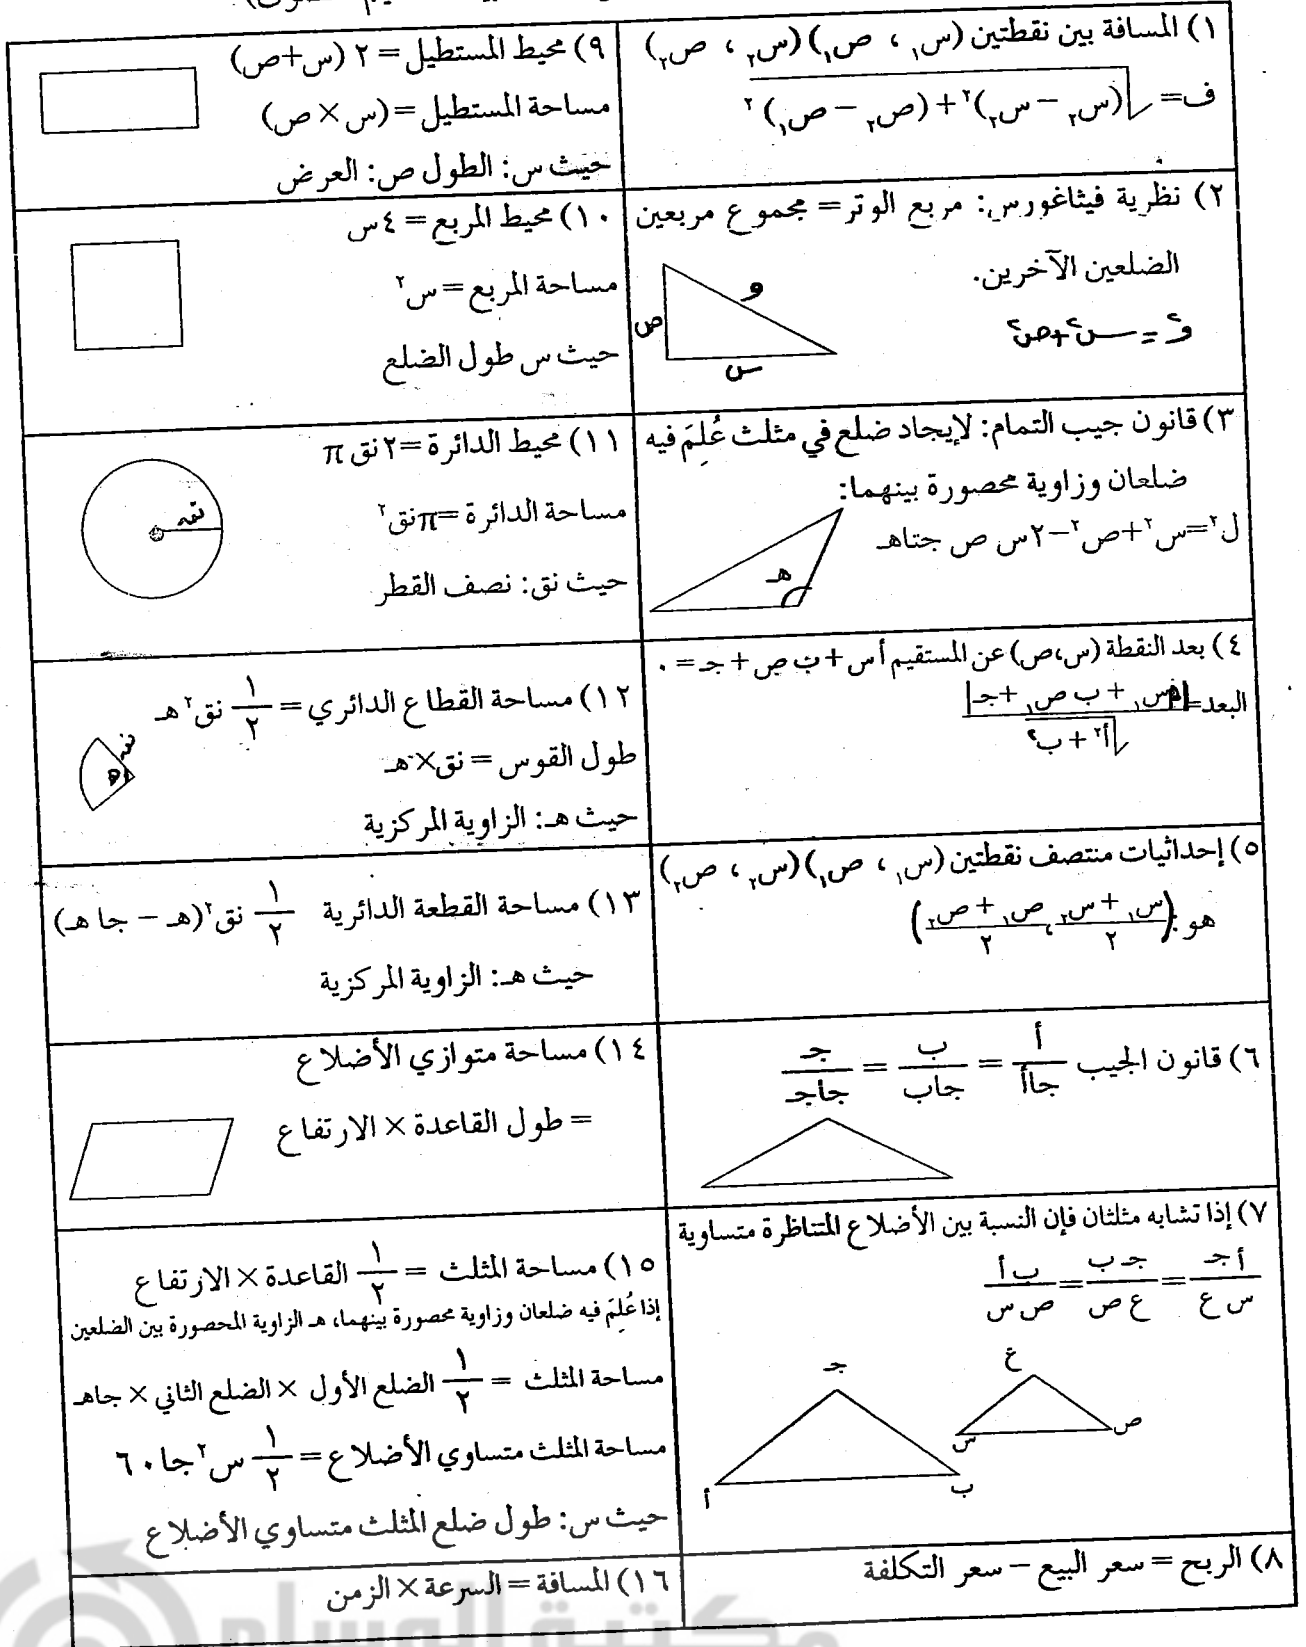 ١) المسافة بين نقطتين (س١ ، ص١) (س٢ ، ص٢)
ف= √(س٢ − س٢)٢ + (ص٢ − ص١)٢
٢) نظرية فيثاغورس: مربع الوتر = مجموع مربعين
الضلعين الآخرين.
و٢ = س٢ + ص٢
و
ص
س
٣) قانون جيب التمام: لإيجاد ضلع في مثلث عُلِمَ فيه
ضلعان وزاوية محصورة بينهما:
ل٢=س٢+ص٢−٢س ص جتاهـ
هـ
٤) بعد النقطة (س،ص) عن المستقيم أ س + ب ص + جـ = ٠
البعد= |أس١ + ب ص١ + جـ|
√أ٢ + ب٢
٥) إحداثيات منتصف نقطتين (س١ ، ص١) (س٢ ، ص٢)
هو: (س١ + س٢ / ٢ ، ص١ + ص٢ / ٢)
٦) قانون الجيب أ / جاأ = ب / جاب = جـ / جاجـ
٧) إذا تشابه مثلثان فإن النسبة بين الأضلاع المتناظرة متساوية
أ جـ / س ع = جـ ب / ع ص = ب أ / ص س
جـ
ع
س
ص
أ
ب
٨) الربح = سعر البيع − سعر التكلفة
٩) محيط المستطيل = ٢ (س+ص)
مساحة المستطيل = (س × ص)
حيث س: الطول ص: العرض
١٠) محيط المربع = ٤س
مساحة المربع = س٢
حيث س طول الضلع
١١) محيط الدائرة =٢نق π
مساحة الدائرة =πنق٢
حيث نق: نصف القطر
نق
١٢) مساحة القطاع الدائري = ١/٢ نق٢ هـ
طول القوس = نق×هـ
حيث هـ: الزاوية المركزية
نق
هـ
١٣) مساحة القطعة الدائرية ١/٢ نق٢(هـ − جا هـ)
حيث هـ: الزاوية المركزية
١٤) مساحة متوازي الأضلاع
= طول القاعدة × الارتفاع
١٥) مساحة المثلث = ١/٢ القاعدة × الارتفاع
إذا عُلِمَ فيه ضلعان وزاوية محصورة بينهما، هـ الزاوية المحصورة بين الضلعين
مساحة المثلث = ١/٢ الضلع الأول × الضلع الثاني × جاهـ
مساحة المثلث متساوي الأضلاع = ١/٢ س٢ جا٦٠
حيث س: طول ضلع المثلث متساوي الأضلاع
١٦) المسافة = السرعة × الزمن